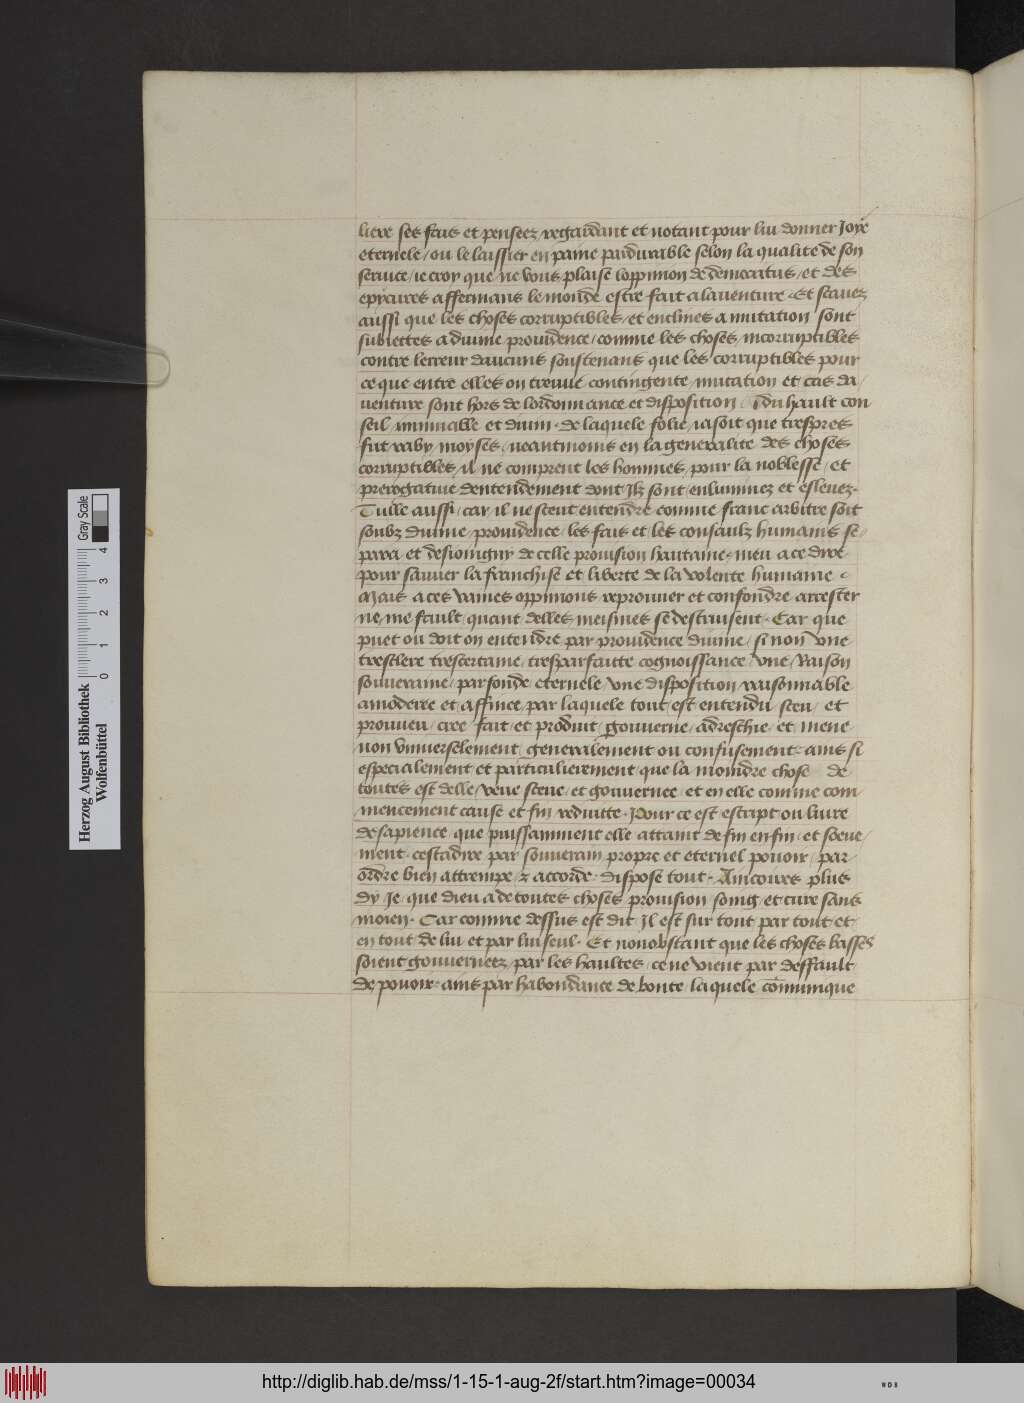 liere ses fais et pensees regardant et notant pour lui donner Joye
eternele / ou le laissier en paine pardurable selon la qualite de son
seruice / ie croy que ne vous plaise loppinion de democratus / et des
epycures affermans le monde estre fait alauenture. Et scauez
aussi que les choses corruptibles / et enclines a mutation sont
subiettes a diuine prouidence / comme les choses incorruptibles
contre lerreur daucuns soustenans que les corruptibles pour
ce que entre elles on treuue contingente mutation et cas da /
uenture sont hors de lordonnance et disposition du hault con
seil immuable et diuin. de laquele folie / iasoit que trespres
fut raby moyses / neantmoins en la generalite des choses
corruptibles / il ne comprent les hommes pour la noblesse / et
prerogatiue dentendement dont Ilz sont enluminez et esleuez.
Tulle aussi / car il ne sceut entendre comme franc arbitre soit
soubz diuine prouidence / les fais et les consaulz humains se /
para et desioingny de celle prouision haultaine meu a ce dire
pour sauuer la franchise et liberte de la volente humaine
Mais a ces vaines oppinions reprouuer et confondre arrester
ne me fault quant delles meismes se destruisent. Car que
puet ou doit on entendre par prouidence diuine / si non vne
tresclere trescertaine tresparfaitte cognoissance / vne Raison
souueraine parfonde eternele vne disposition raisonnable
amoderee et affince par laquele tout est entendu sceu / et
prouueu / cree fait et produit gouuerne / adreschie et mene
non vniuerselement generalement ou confusement. ains si
especialement et particulierement que la moindre chose de
toutes est delle / veue sceue / et gouuernee / et en elle comme com
mencement cause et fin reduitte. Pour ce est escript ou liure
de sapience que puissamment elle attaint de fin en fin / et soeue /
ment. cestadire par souuerain propre et eternel pouoir / par
ordre bien attrempe / & accorde. dispose tout. Aincores plus
dy Je que dieu a de toutes choses prouision soing et cure sans
moien. Car comme dessus est dit Il est sur tout par tout et
en tout de lui et par lui seul. Et nonobstant que les choses basses
soient gouuernees par les haultes / ce ne vient par deffault
de pouoir. ains par habondance de bonte laquele communique
Herzog August Bibliothek
Wolfenbüttel
Gray Scale
0 1 2 3 4
http://diglib.hab.de/mss/1-15-1-aug-2f/start.htm?image=00034
WDB